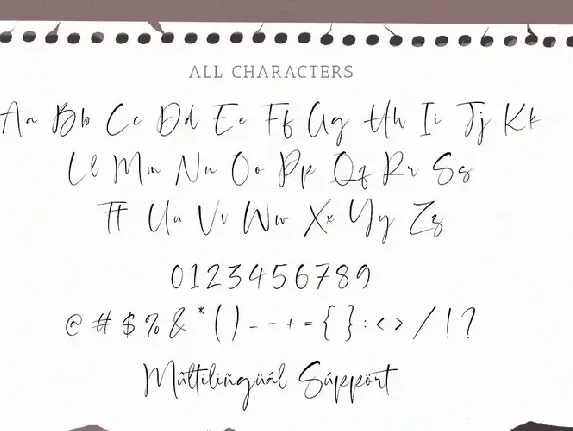 ALL CHARACTERS
Aa Bb Cc Dd Ee Ff Gg Hh Ii Jj Kk
Ll Mm Nn Oo Pp Qq Rr Ss
Tt Uu Vv Ww Xx Yy Zz
0123456789
@ # $ % & * ( ) _ - + = { } : < > / ! ?
Múltilingüál Súppórt